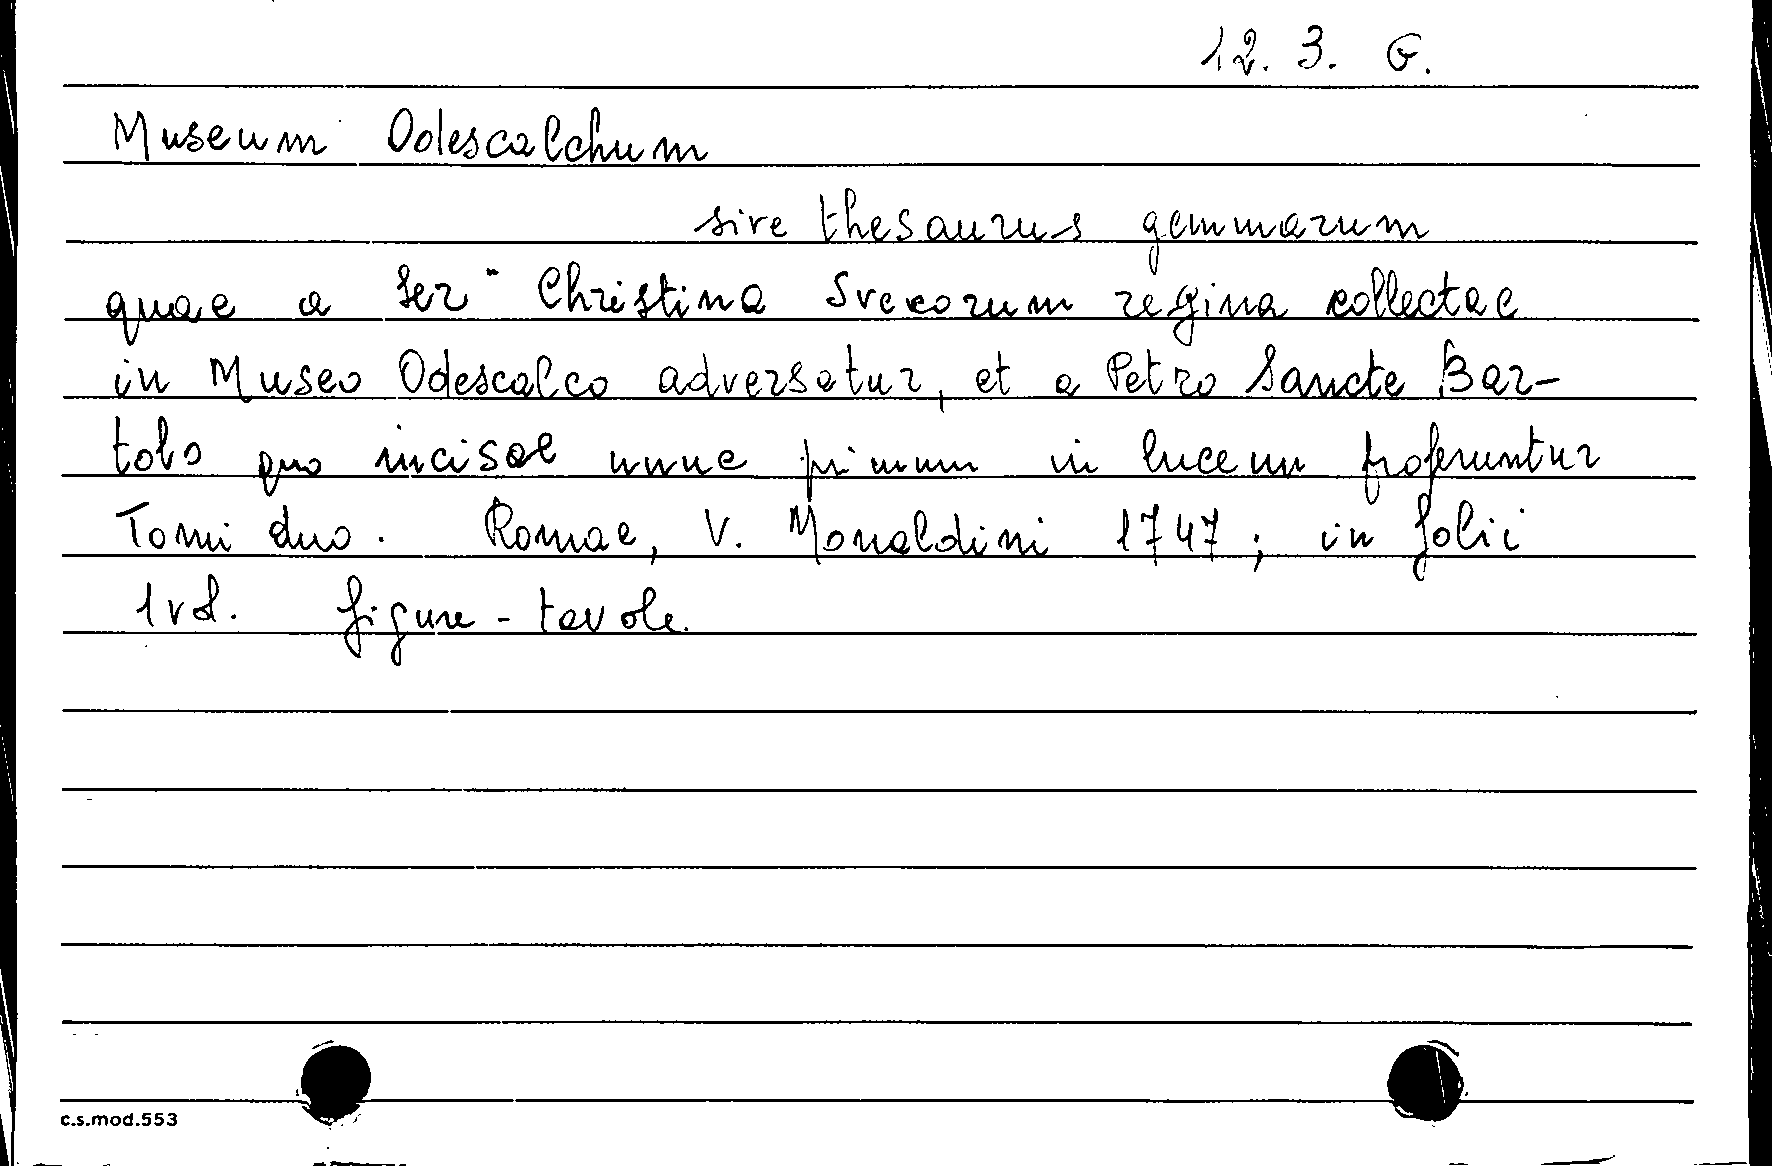 12. 3. G.
Museum Odescalchum
sive thesaurus gemmarum
quae a Ser" Christina Svecorum regina collectae
in Museo Odescalco adversatur, et a Petro Sancte Bar-
tolo quo incisae nunc primum in lucem proferuntur
Tomi duo. Romae, V. Monaldini 1747; in folii
1 vol. figure - tavole.
c.s.mod.553